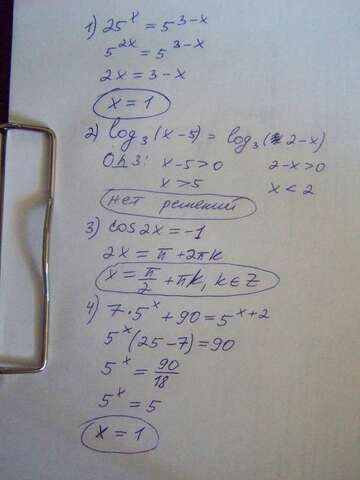 1) 25^x = 5^(3-x)
5^(2x) = 5^(3-x)
2x = 3-x
x = 1
2) log₃(x-5) = log₃(2-x)
ОДЗ: x-5>0 2-x>0
x>5 x<2
нет решений
3) cos2x = -1
2x = π + 2πk
x = π/2 + πk, k∈Z
4) 7·5^x + 90 = 5^(x+2)
5^x(25-7) = 90
5^x = 90/18
5^x = 5
x = 1